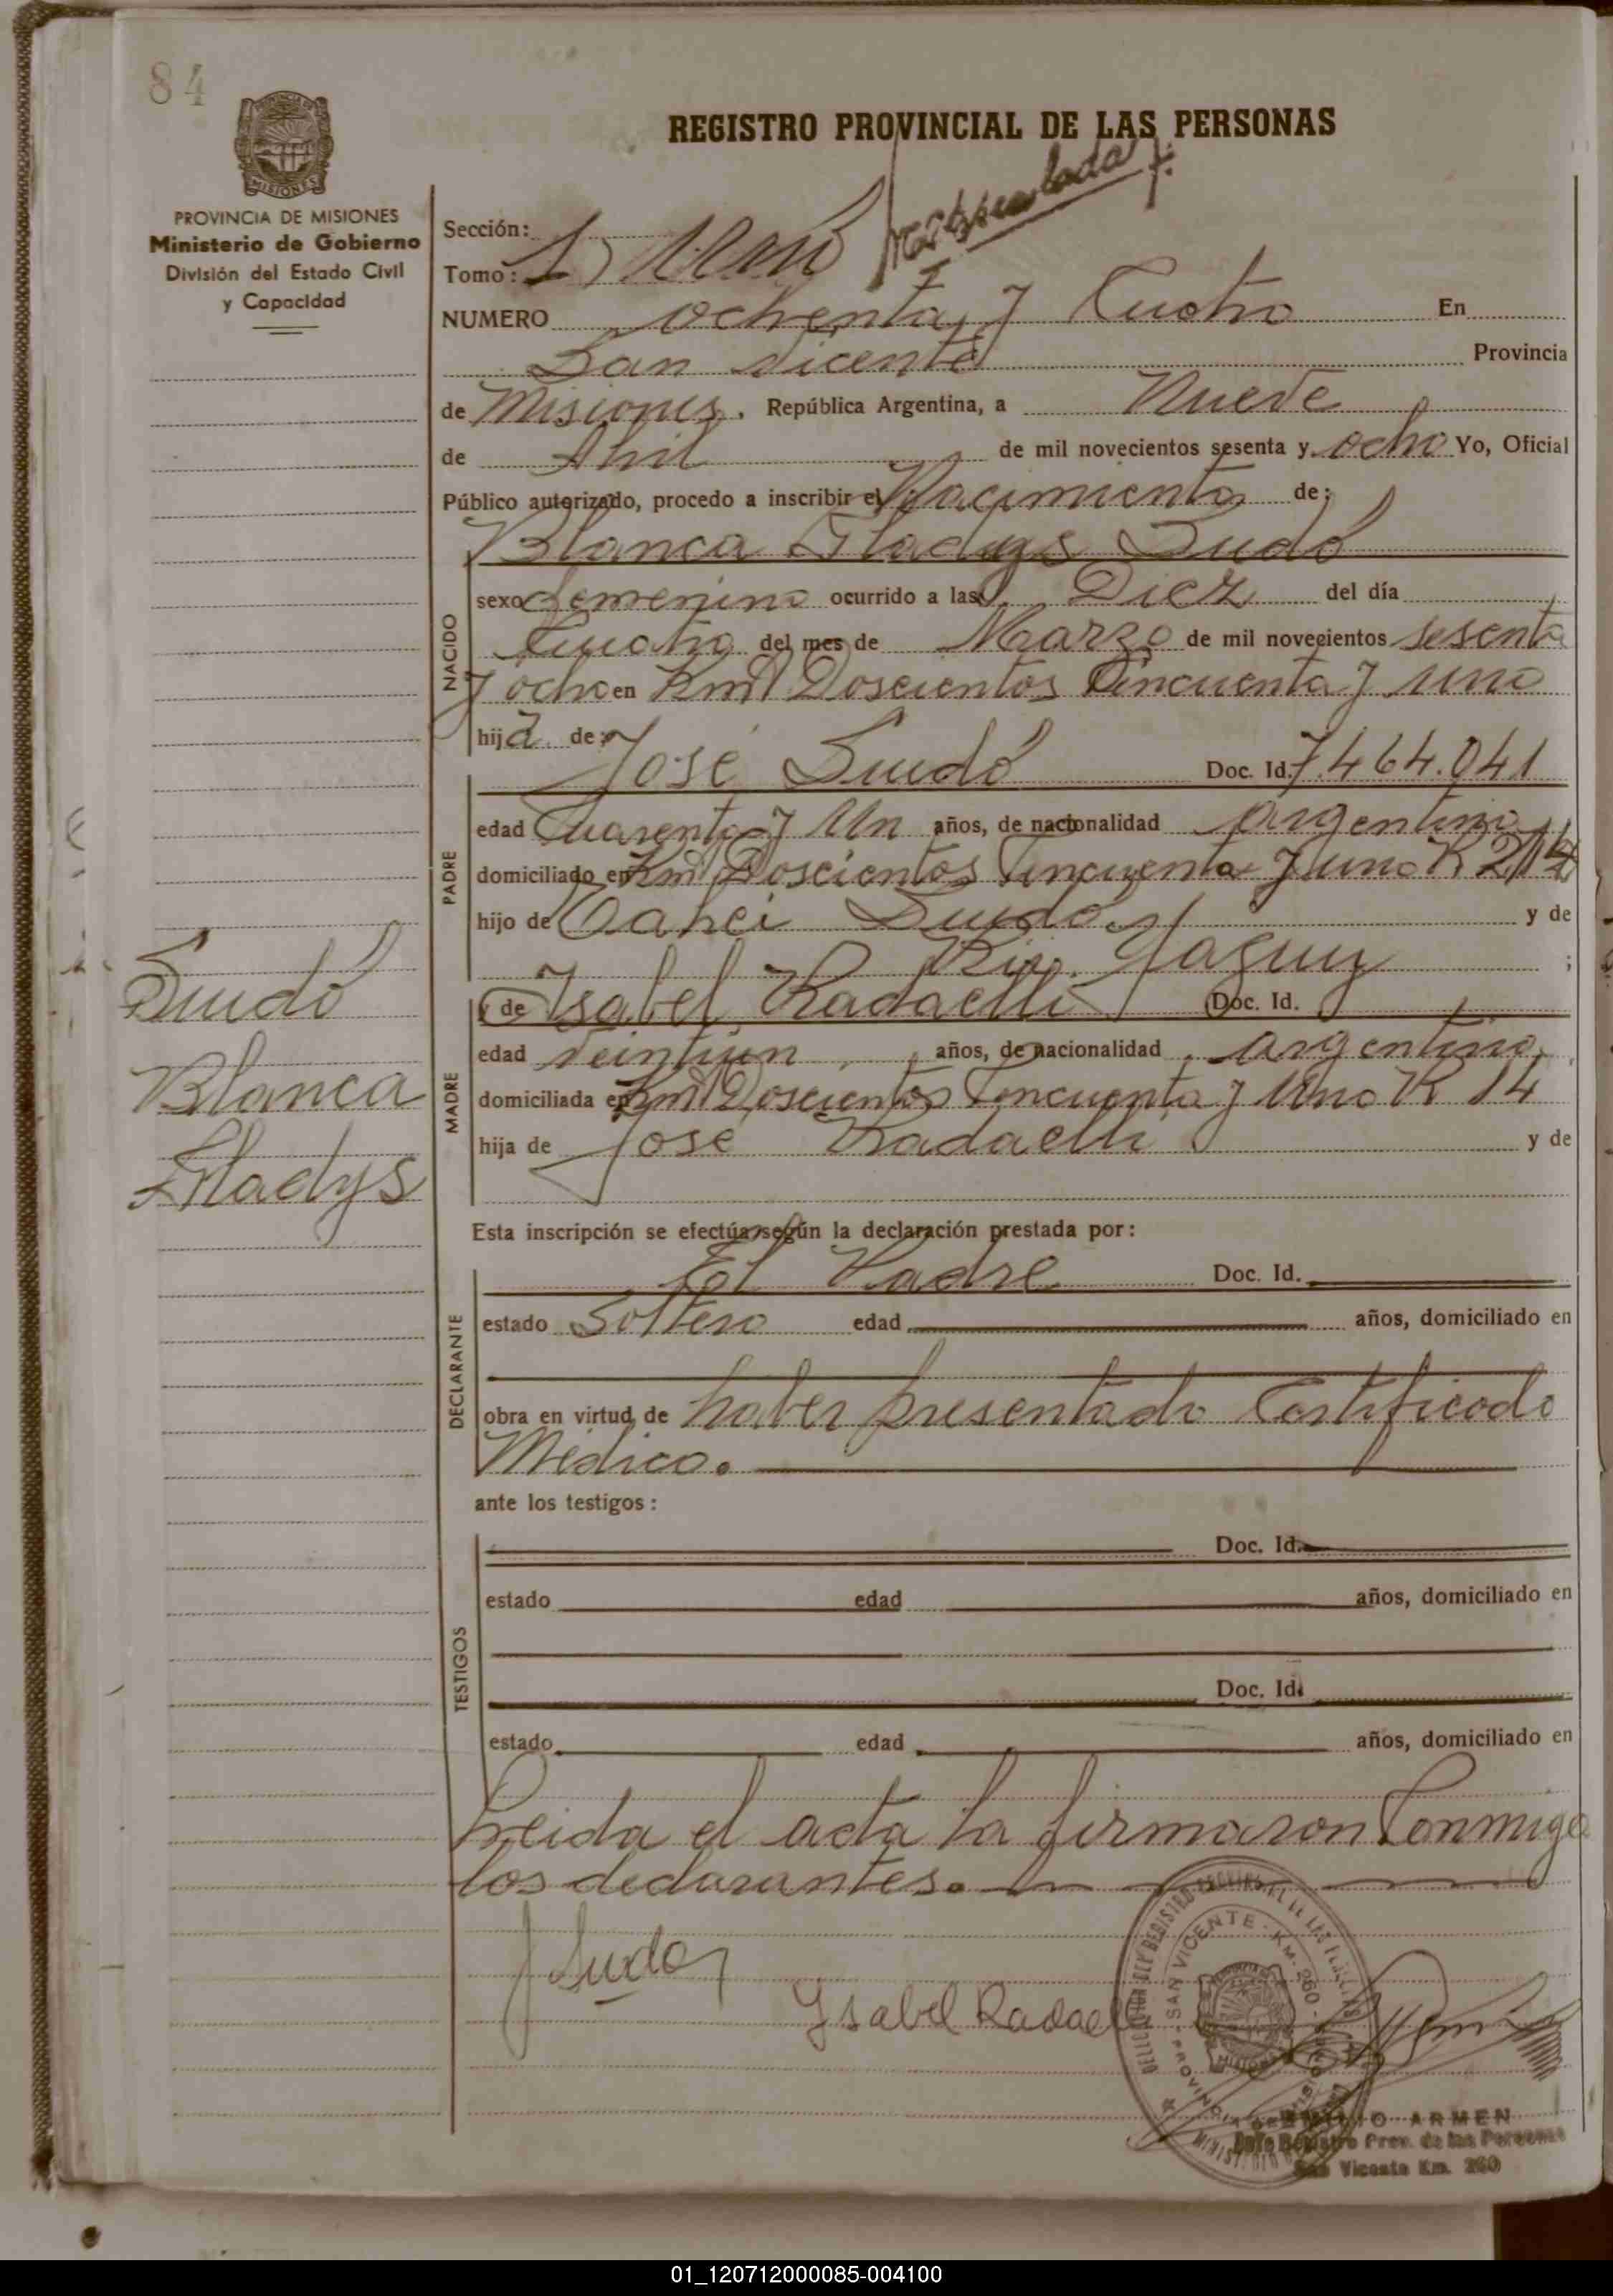 84
PROVINCIA DE MISIONES
Ministerio de Gobierno
División del Estado Civil
y Capacidad
REGISTRO PROVINCIAL DE LAS PERSONAS
Sección:
Tomo: 1)
NUMERO ochenta y Cuatro En
San Vicente Provincia
de Misiones, República Argentina, a Nueve
de Abril de mil novecientos sesenta y ocho Yo, Oficial
Público autorizado, procedo a inscribir el Nacimiento de:
Blanca Gladys Sudó
NACIDO
sexo femenino ocurrido a las Diez del día
Cuatro del mes de Marzo de mil novecientos sesenta
y ocho en Km Doscientos Cincuenta y uno
hija de: José Sudó Doc. Id. 7.464.041
PADRE
edad Cuarenta y Un años, de nacionalidad argentino
domiciliado en Km Doscientos Cincuenta y uno R
hijo de Sudó y de
;
y de Isabel Radaelli Doc. Id.
MADRE
edad veintiun años, de nacionalidad argentina,
domiciliada en Km Doscientos Cincuenta y Uno R 14
hija de José Radaelli y de
Sudó
Blanca
Gladys
Esta inscripción se efectúa según la declaración prestada por:
DECLARANTE
El Padre Doc. Id.
estado Soltero edad años, domiciliado en
obra en virtud de haber presentado Certificado
Médico.
ante los testigos:
TESTIGOS
Doc. Id.
estado edad años, domiciliado en
Doc. Id.
estado edad años, domiciliado en
Leida el acta la firmaron Conmigo
los declarantes.
J Sudo
Ysabel Radaelli
SAN VICENTE - KM. 260 -
EMILIO ARMEN
Jefe Registro Prov. de las Personas
San Vicente Km. 260
01_120712000085-004100